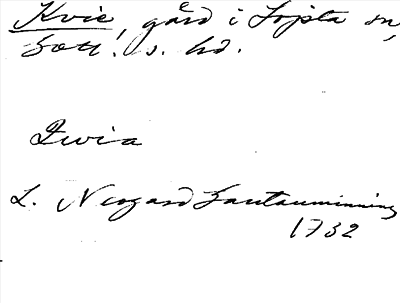 Kvie, gård i Lojsta sn,
Gotl. s. hd.
Qwia
L. Neogard Gautauminning
1732